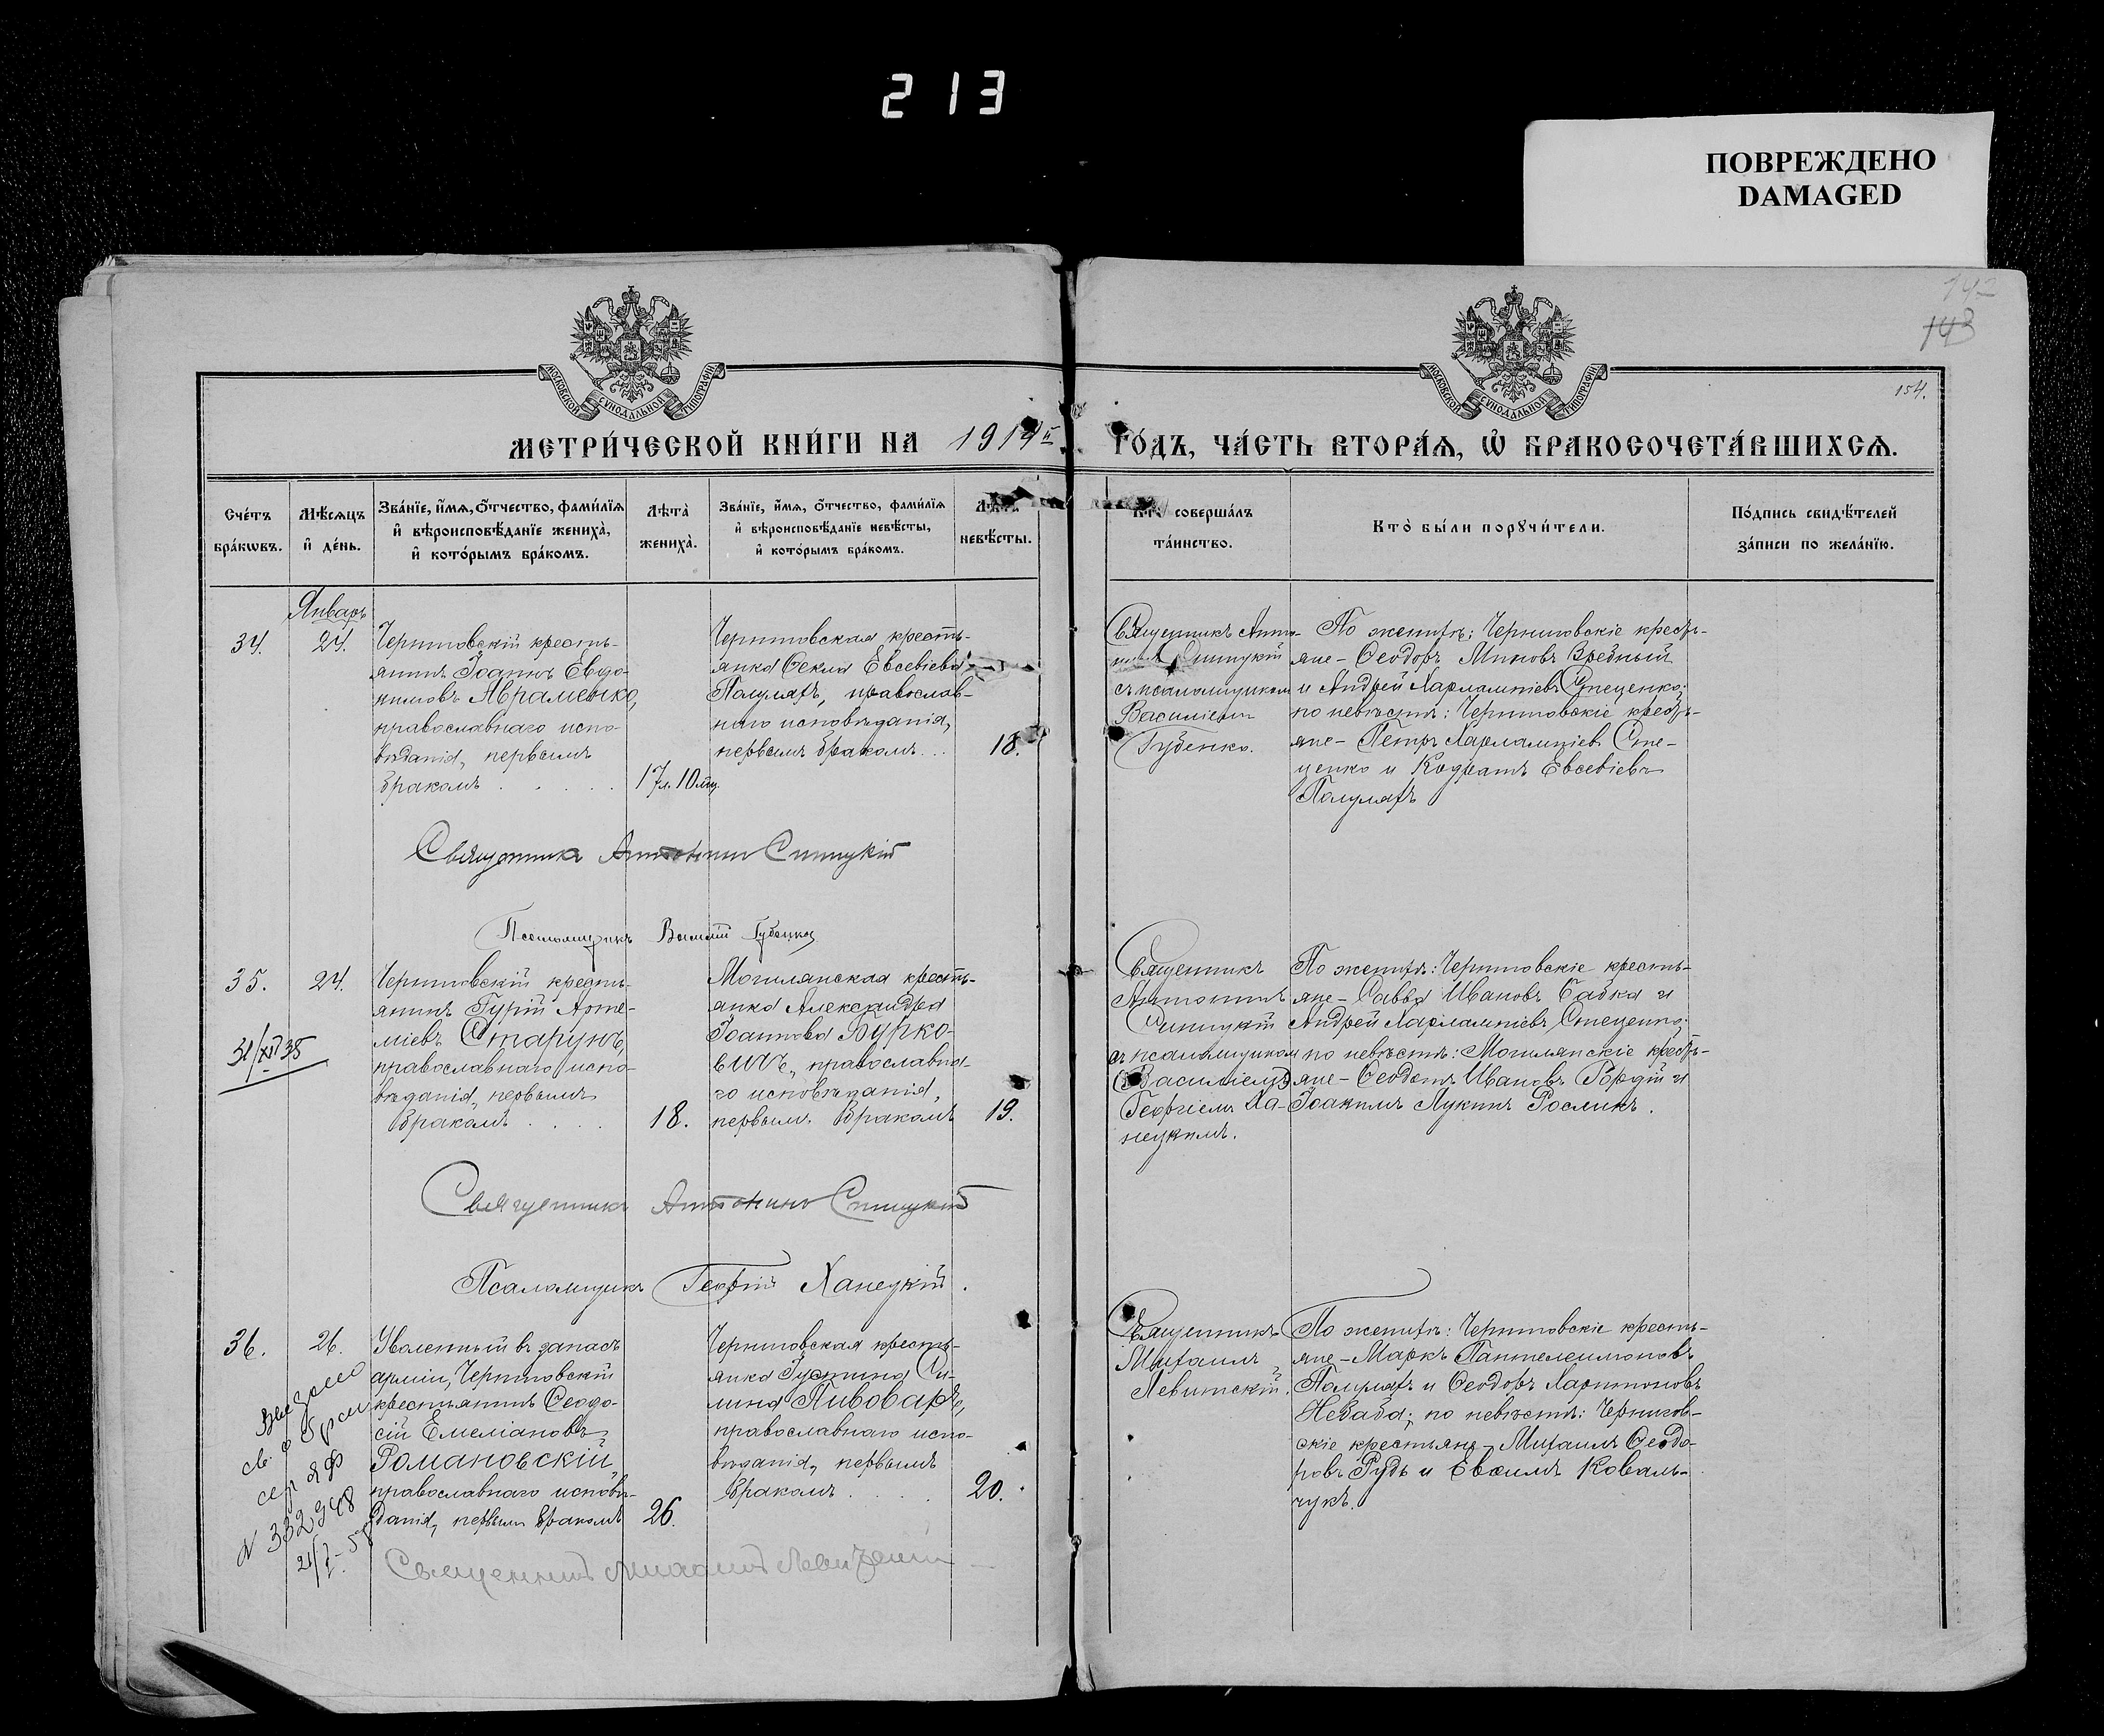 213
ПОВРЕЖДЕНО
DAMAGED
142
143
154.
МОСКОВСКОЙ СѴНОДАЛЬНОЙ ТИПОГРАФІИ
МОСКОВСКОЙ СѴНОДАЛЬНОЙ ТИПОГРАФІИ
МЕТРИ́ЧЕСКОЙ КНИ́ГИ НА 1914й
ГО́ДЪ, ЧА́СТЬ ВТОРА́Я, Ѽ БРАКОСОЧЕТА́ВШИХСѦ.
Сче́тъ
бра́кѡвъ.
Мѣ́сѧцъ
и҆ де́нь.
Зва́нїе, и҆́мѧ, ѻ҆́тчество, фами́лїѧ
и҆ вѣроисповѣ́данїе жениха̀,
и҆ кото́рымъ бра́комъ.
Лѣта̀
жениха̀.
Зва́нїе, и҆́мѧ, ѻ҆́тчество, фами́лїѧ
и҆ вѣроисповѣ́данїе невѣ́сты,
и҆ кото́рымъ бра́комъ.
невѣ́сты.
Кто̀ соверша́лъ
та́инство.
Кто̀ бы́ли порꙋчи́тели.
По́дпись свидѣ́телей
за́писи по жела́нїю.
Январь
34.
24.
Черниговскій кресть-
янинъ Іоаннъ Евдо-
кимовъ Авраменко,
православнаго испо-
вѣданія, первымъ
бракомъ . . . . .
17 л. 10 мц.
Черниговская кресть-
янка Ѳекла Евсевіева
Полуляхъ, православ-
наго исповѣданія,
первымъ бракомъ . .
18.
Священникъ Анто-
нинъ Синицкій
съ псаломщикомъ
Василіемъ
Губенко.
По женихѣ: Черниговскіе кресть-
яне - Ѳеодоръ Миновъ Вредный
и Андрей Харлампіевъ Стеценко;
по невѣстѣ: Черниговскіе кресть-
яне - Петръ Харлампіевъ Сте-
ценко и Кодратъ Евсевіевъ
Полуляхъ
Священникъ Антонинъ Синицкій
Псаломщикъ Василій Губенко
35.
24.
31/XII 35
Черниговскій кресть-
янинъ Гурій Арте-
міевъ Старунъ,
православнаго испо-
вѣданія, первымъ
бракомъ . . . .
18.
Могилянская кресть-
янка Александра
Іоаннова Бурко-
православна-
го исповѣданія,
первымъ бракомъ
19.
Священникъ
Антонинъ
Синицкій
съ псаломщикомъ
(Василіемъ)
Георгіемъ Ха-
нецкимъ.
По женихѣ: Черниговскіе кресть-
яне - Савва Ивановъ Бабка и
Андрей Харлампіевъ Стеценко;
по невѣстѣ: Могилянскіе кресть-
яне - Ѳеодотъ Ивановъ Гордій и
Іоакимъ Лукинъ Росликъ.
Священникъ Антонинъ Синицкій
Псаломщикъ Георгій Ханецкій.
36.
26.
св. о
сер ЯФ
N 332348
21/7 - 58
Уволенный въ запасъ
арміи, Черниговскій
крестьянинъ Ѳеодо-
сій Емеліановъ
Романовскій,
православнаго исповѣ-
данія, первымъ бракомъ
26.
Черниговская кресть-
янка Іустина Си-
мина Пивоваръ,
православнаго испо-
вѣданія, первымъ
бракомъ . . . .
20.
Священникъ
Михаилъ
Левитскій.
По женихѣ: Черниговскіе кресть-
яне - Маркъ Пантелеимоновъ
Полуляхъ и Ѳеодоръ Харитоновъ
Небаба; по невѣстѣ: Чернигов-
скіе крестьяне - Михаилъ Ѳеодо-
ровъ Рудь и Евѳимъ Коваль-
чукъ.
Священникъ Михаилъ Левитскій